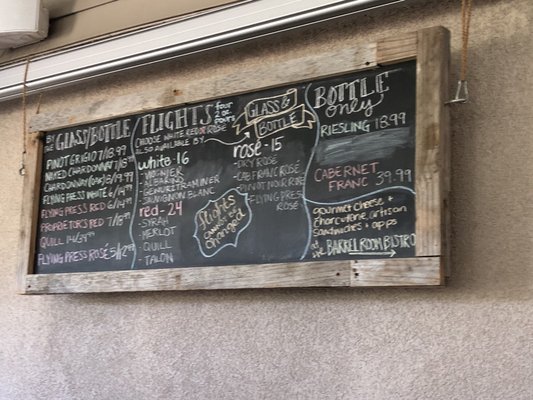 BY THE GLASS/BOTTLE
PINOT GRIGIO 7/18.99
NAKED CHARDONNAY 7/18.99
CHARDONNAY (oak) 8/19.99
FLYING PRESS WHITE 6/14.99
FLYING PRESS RED 6/14.99
PROPRIETOR'S RED 7/18.99
QUILL 14/34.99
FLYING PRESS ROSÉ 5/12.99
FLIGHTS four 2 oz pours
CHOOSE WHITE RED OR ROSÉ
ALSO AVAILABLE BY
GLASS & BOTTLE
white · 16
- VIOGNIER
- ALBARINO
- GEWURZTRAMINER
- SAUVIGNON BLANC
red - 24
- SYRAH
- MERLOT
- QUILL
- TALON
rosé - 15
- DRY ROSE
- CAB FRANC ROSÉ
- PINOT NOIR ROSÉ
- FLYING PRESS ROSÉ
flights
cannot be
changed
BOTTLE
only
RIESLING 18.99
CABERNET
FRANC 39.99
gourmet cheese +
charcuterie, artisan
sandwiches + apps
at the BARREL ROOM BISTRO